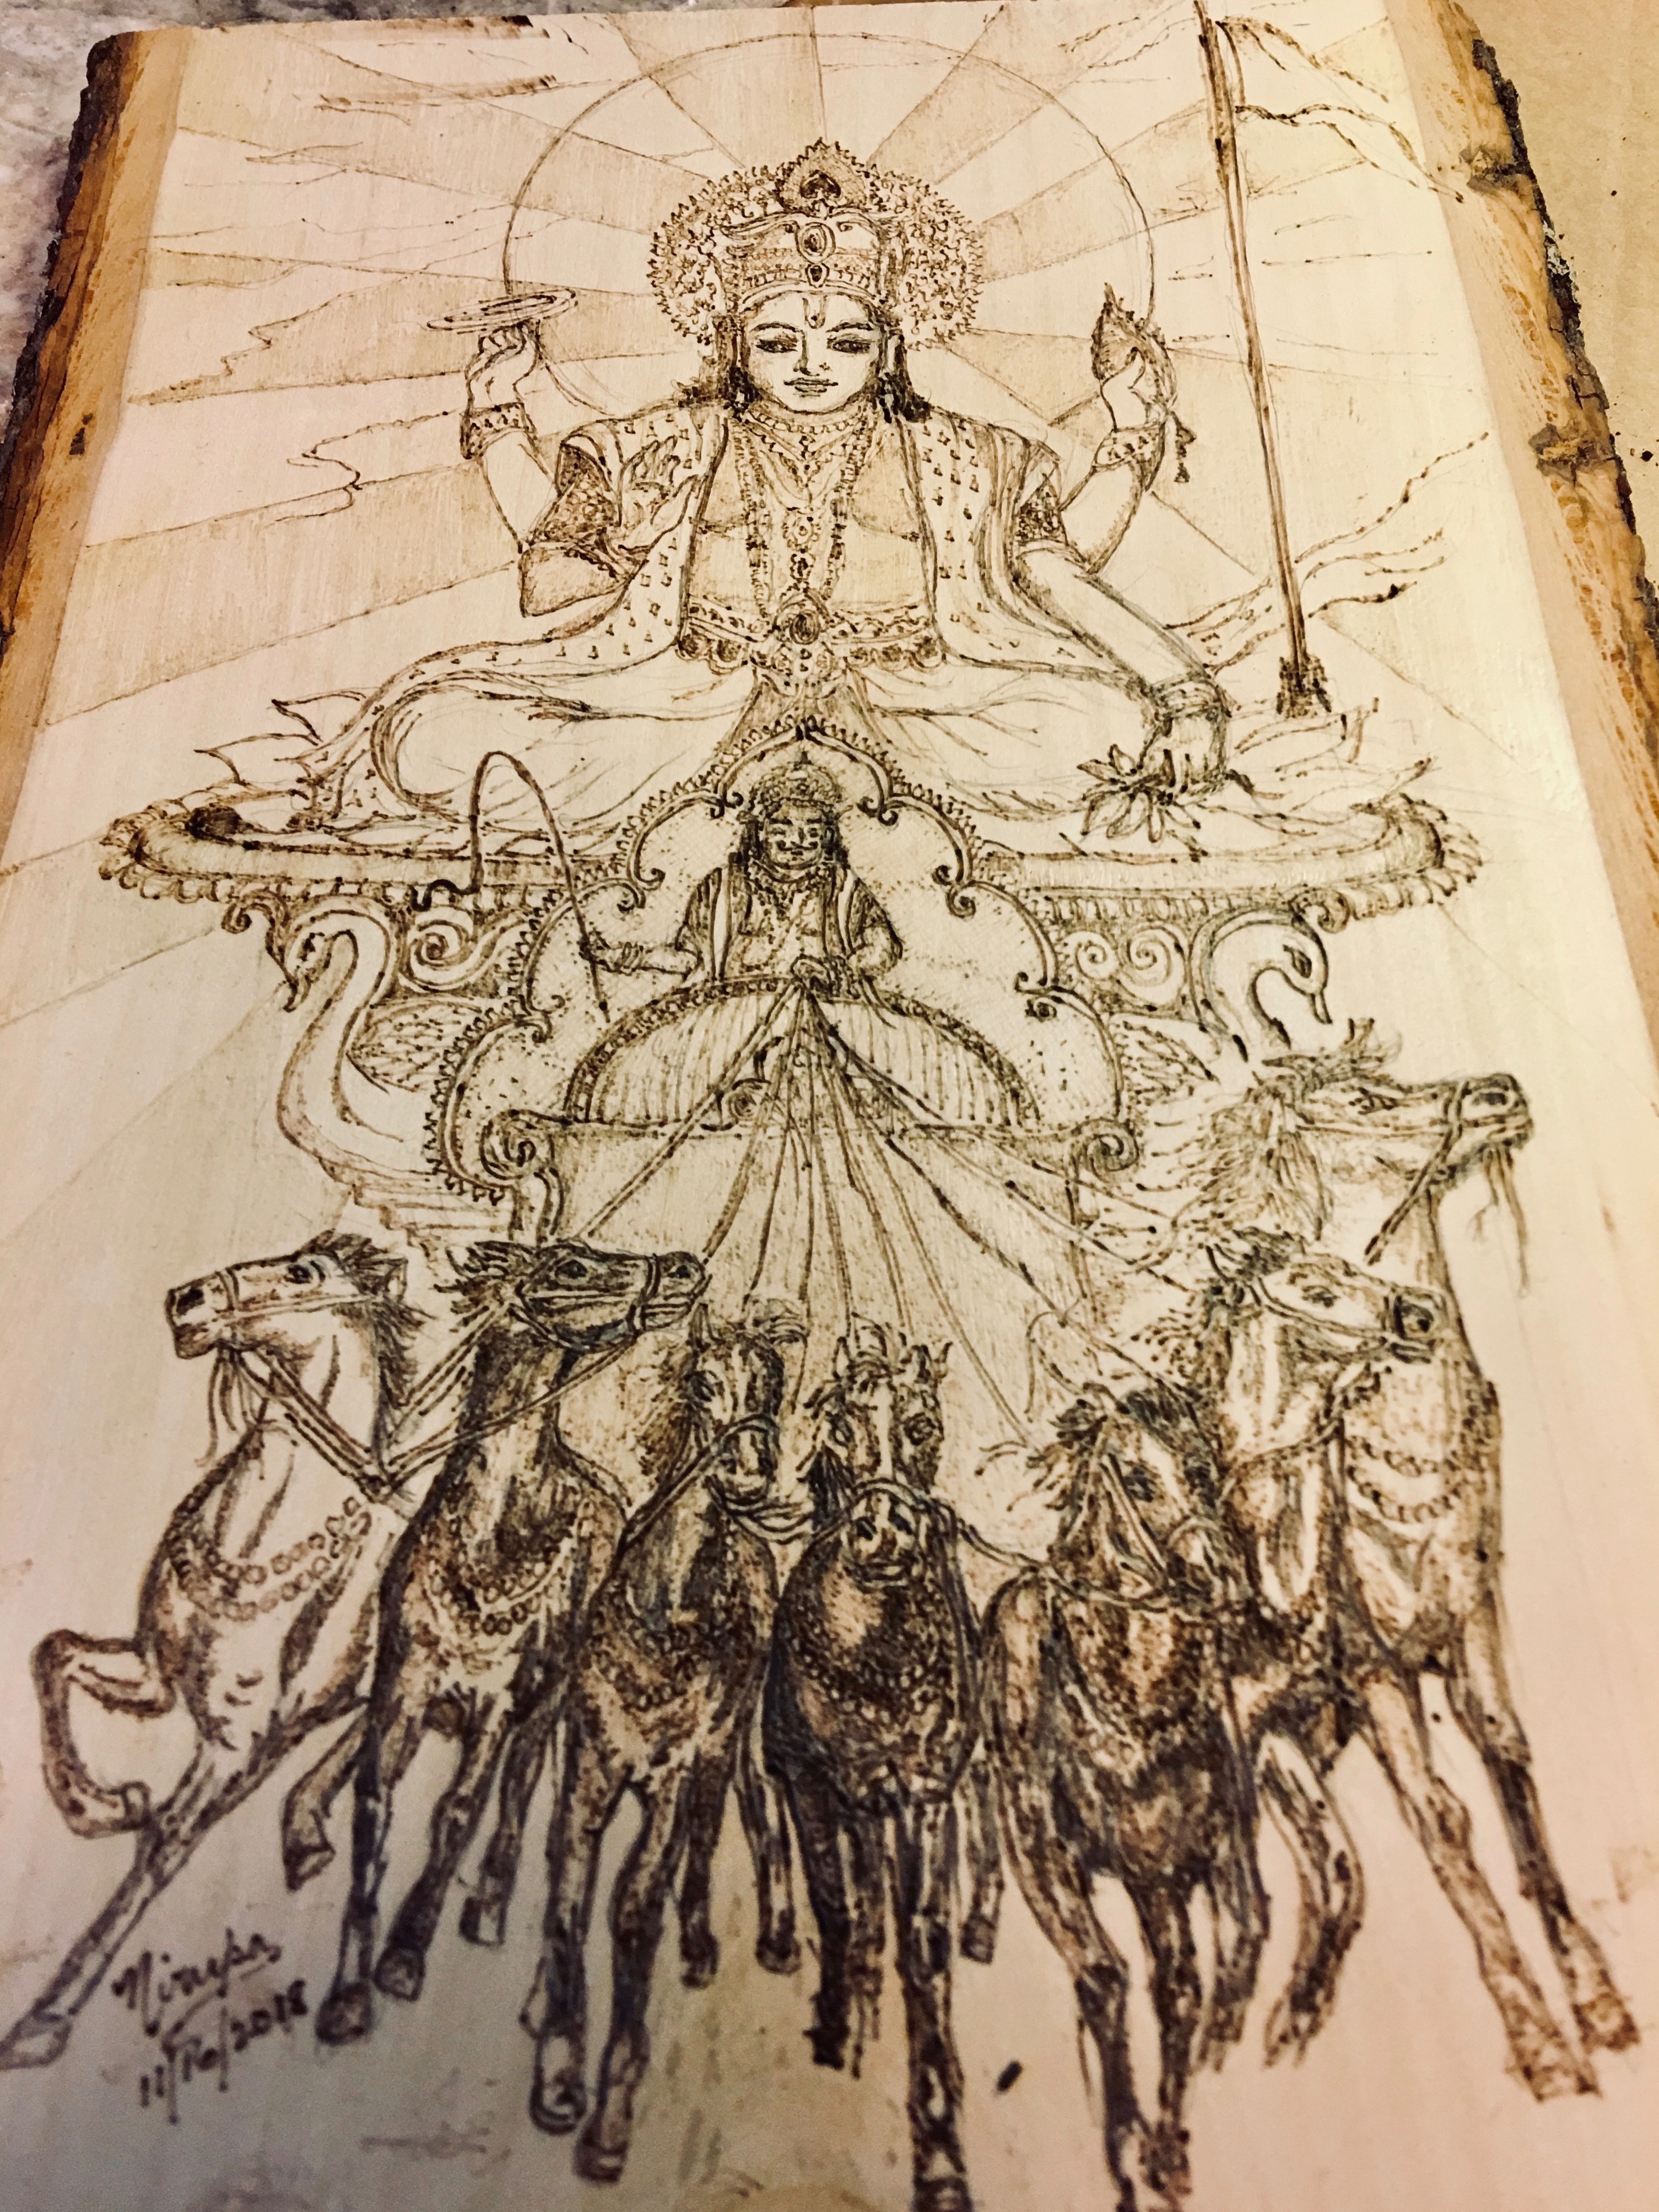 Nirupa
11/10/2018